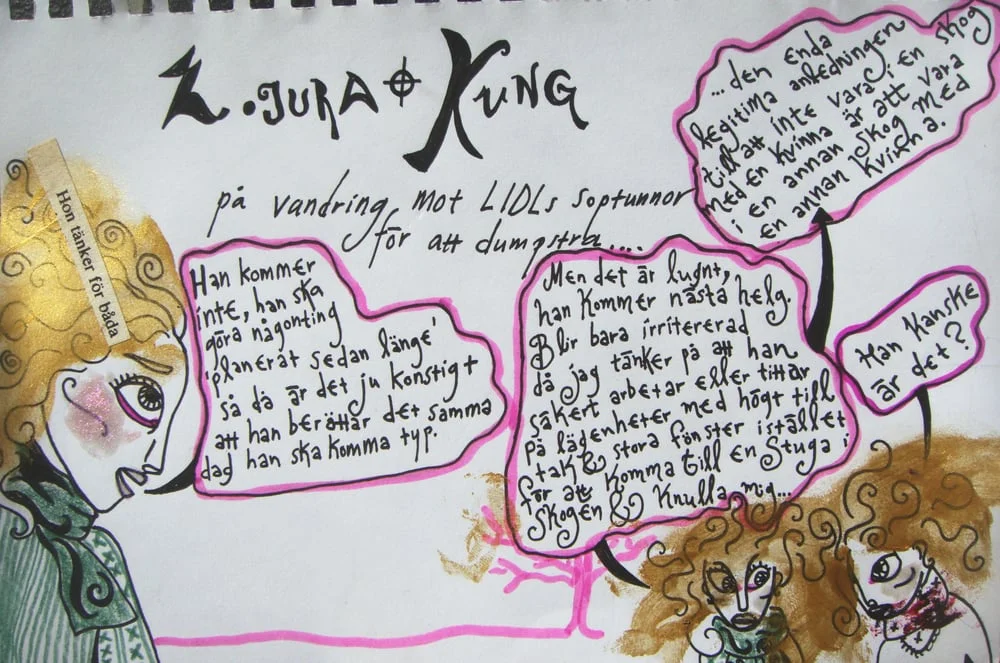 Z.JURA + KUNG
på vandring mot LIDLs soptunnor
för att dumpstra....
Hon tänker för båda
Han kommer
inte, han ska
göra någonting
planerat sedan länge
så då är det ju konstigt
att han berättar det samma
dag han ska komma typ.
Men det är lugnt,
han kommer nästa helg.
Blir bara irritererad
då jag tänker på att han
säkert arbetar eller tittar
på lägenheter med högt till
tak & stora fönster istället
för att komma till en stuga i
skogen & knulla mig...
...den enda
legitima anledningen
till att inte vara i en skog
med en kvinna är att vara
i en annan skog med
en annan kvinna.
Han kanske
är det?